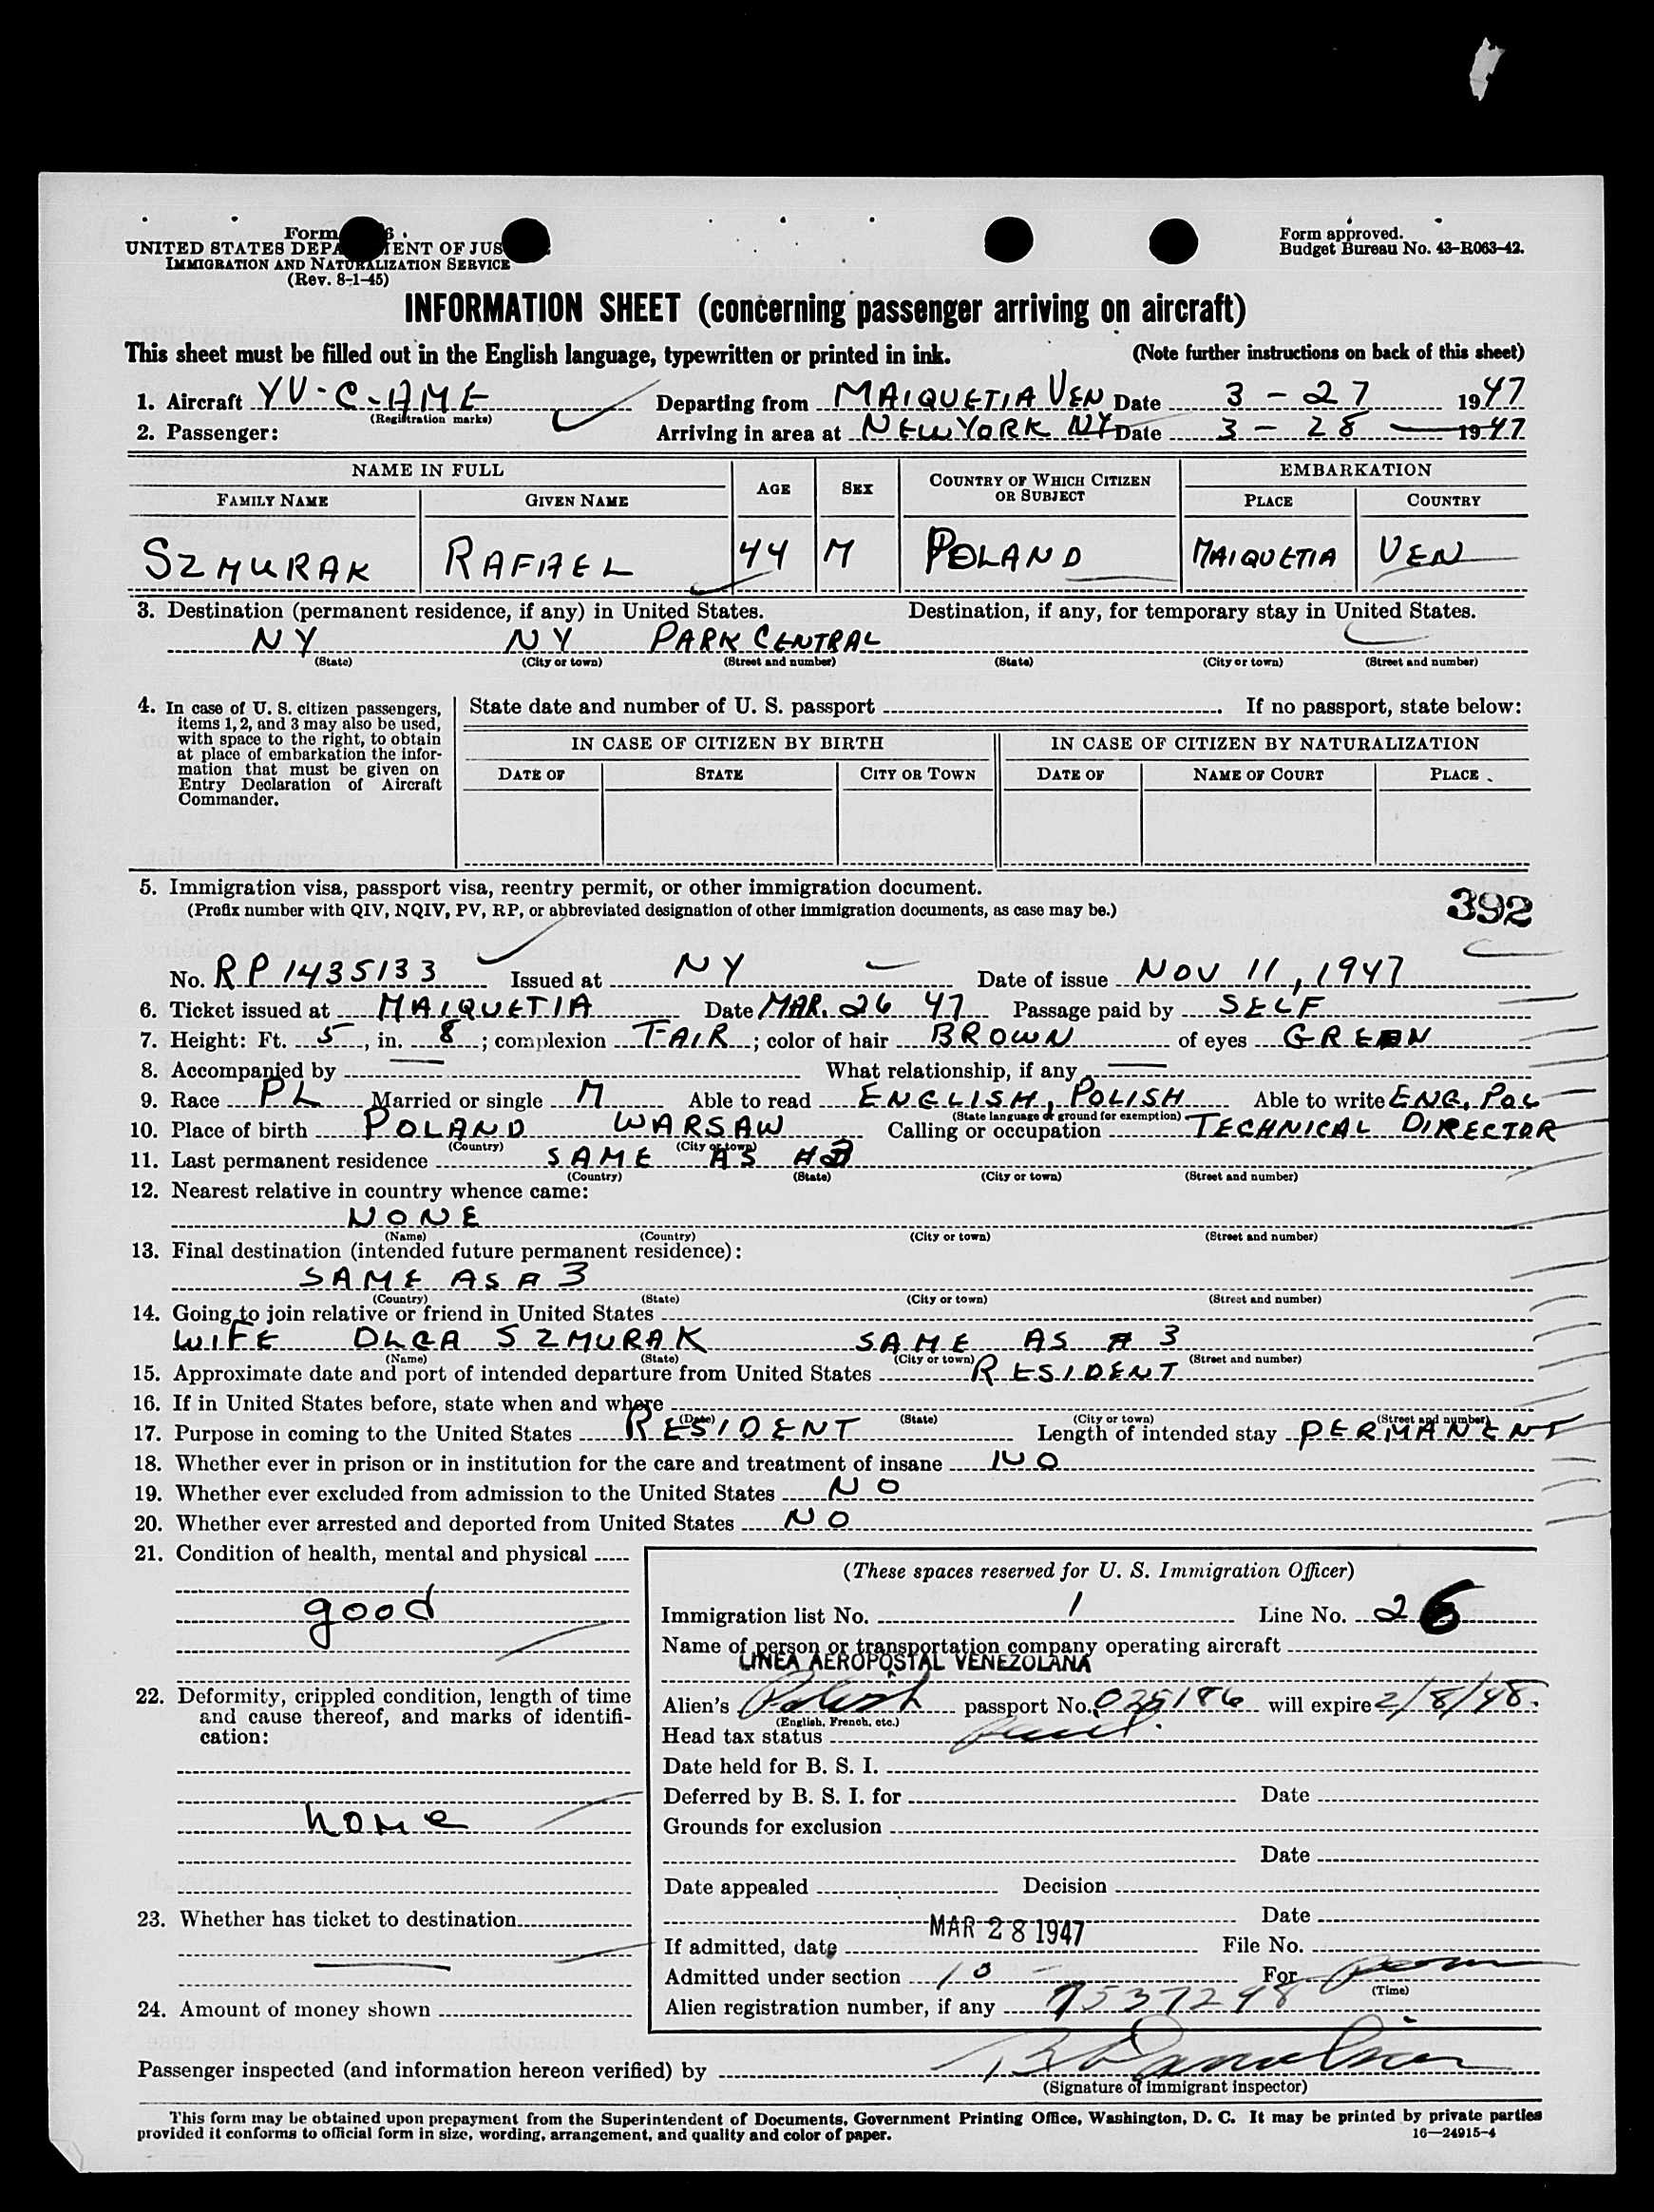 Form
UNITED STATES DEPA ENT OF JUS
IMMIGRATION AND NATURALIZATION SERVICE
(Rev. 8-1-45)
Form approved.
Budget Bureau No. 43-R063-42.
INFORMATION SHEET (concerning passenger arriving on aircraft)
This sheet must be filled out in the English language, typewritten or printed in ink. (Note further instructions on back of this sheet)
1. Aircraft YV-C-AME Departing from MAIQUETIA VEN Date 3-27 1947
(Registration marks)
2. Passenger: Arriving in area at NEW YORK NY Date 3-28 1947
NAME IN FULL AGE SEX COUNTRY OF WHICH CITIZEN OR SUBJECT EMBARKATION
FAMILY NAME GIVEN NAME PLACE COUNTRY
SZMURAK RAFAEL 44 M POLAND MAIQUETIA VEN
3. Destination (permanent residence, if any) in United States. Destination, if any, for temporary stay in United States.
NY NY PARK CENTRAL
(State) (City or town) (Street and number) (State) (City or town) (Street and number)
4. In case of U. S. citizen passengers, items 1, 2, and 3 may also be used, with space to the right, to obtain at place of embarkation the information that must be given on Entry Declaration of Aircraft Commander.
State date and number of U. S. passport If no passport, state below:
IN CASE OF CITIZEN BY BIRTH IN CASE OF CITIZEN BY NATURALIZATION
DATE OF STATE CITY OR TOWN DATE OF NAME OF COURT PLACE
5. Immigration visa, passport visa, reentry permit, or other immigration document.
(Prefix number with QIV, NQIV, PV, RP, or abbreviated designation of other immigration documents, as case may be.)
392
No. RP 1435133 Issued at NY Date of issue NOV 11, 1947
6. Ticket issued at MAIQUETIA Date MAR. 26 47 Passage paid by SELF
7. Height: Ft. 5, in. 8; complexion FAIR; color of hair BROWN of eyes GREEN
8. Accompanied by — What relationship, if any —
9. Race PL Married or single M Able to read ENGLISH, POLISH Able to write ENG, POL
(State language or ground for exemption)
10. Place of birth POLAND WARSAW Calling or occupation TECHNICAL DIRECTOR
(Country) (City or town)
11. Last permanent residence SAME AS #3
(Country) (State) (City or town) (Street and number)
12. Nearest relative in country whence came:
NONE
(Name) (Country) (City or town) (Street and number)
13. Final destination (intended future permanent residence):
SAME AS # 3
(Country) (State) (City or town) (Street and number)
14. Going to join relative or friend in United States
WIFE OLGA SZMURAK SAME AS # 3
(Name) (State) (City or town) (Street and number)
15. Approximate date and port of intended departure from United States RESIDENT
16. If in United States before, state when and where
(Date) (State) (City or town) (Street and number)
17. Purpose in coming to the United States RESIDENT Length of intended stay PERMANENT
18. Whether ever in prison or in institution for the care and treatment of insane NO
19. Whether ever excluded from admission to the United States NO
20. Whether ever arrested and deported from United States NO
21. Condition of health, mental and physical
good
22. Deformity, crippled condition, length of time and cause thereof, and marks of identification:
none
23. Whether has ticket to destination
24. Amount of money shown
(These spaces reserved for U. S. Immigration Officer)
Immigration list No. 1 Line No. 26
Name of person or transportation company operating aircraft
LINEA AEROPOSTAL VENEZOLANA
Alien's Polish passport No. 035186 will expire 2/8/48.
(English, French, etc.)
Head tax status paid.
Date held for B. S. I.
Deferred by B. S. I. for Date
Grounds for exclusion
Date
Date appealed Decision
Date
If admitted, date MAR 28 1947 File No.
Admitted under section 10 For perm
(Time)
Alien registration number, if any 7537298
Passenger inspected (and information hereon verified) by
(Signature of immigrant inspector)
This form may be obtained upon prepayment from the Superintendent of Documents, Government Printing Office, Washington, D. C. It may be printed by private parties
provided it conforms to official form in size, wording, arrangement, and quality and color of paper. 16—24915-4